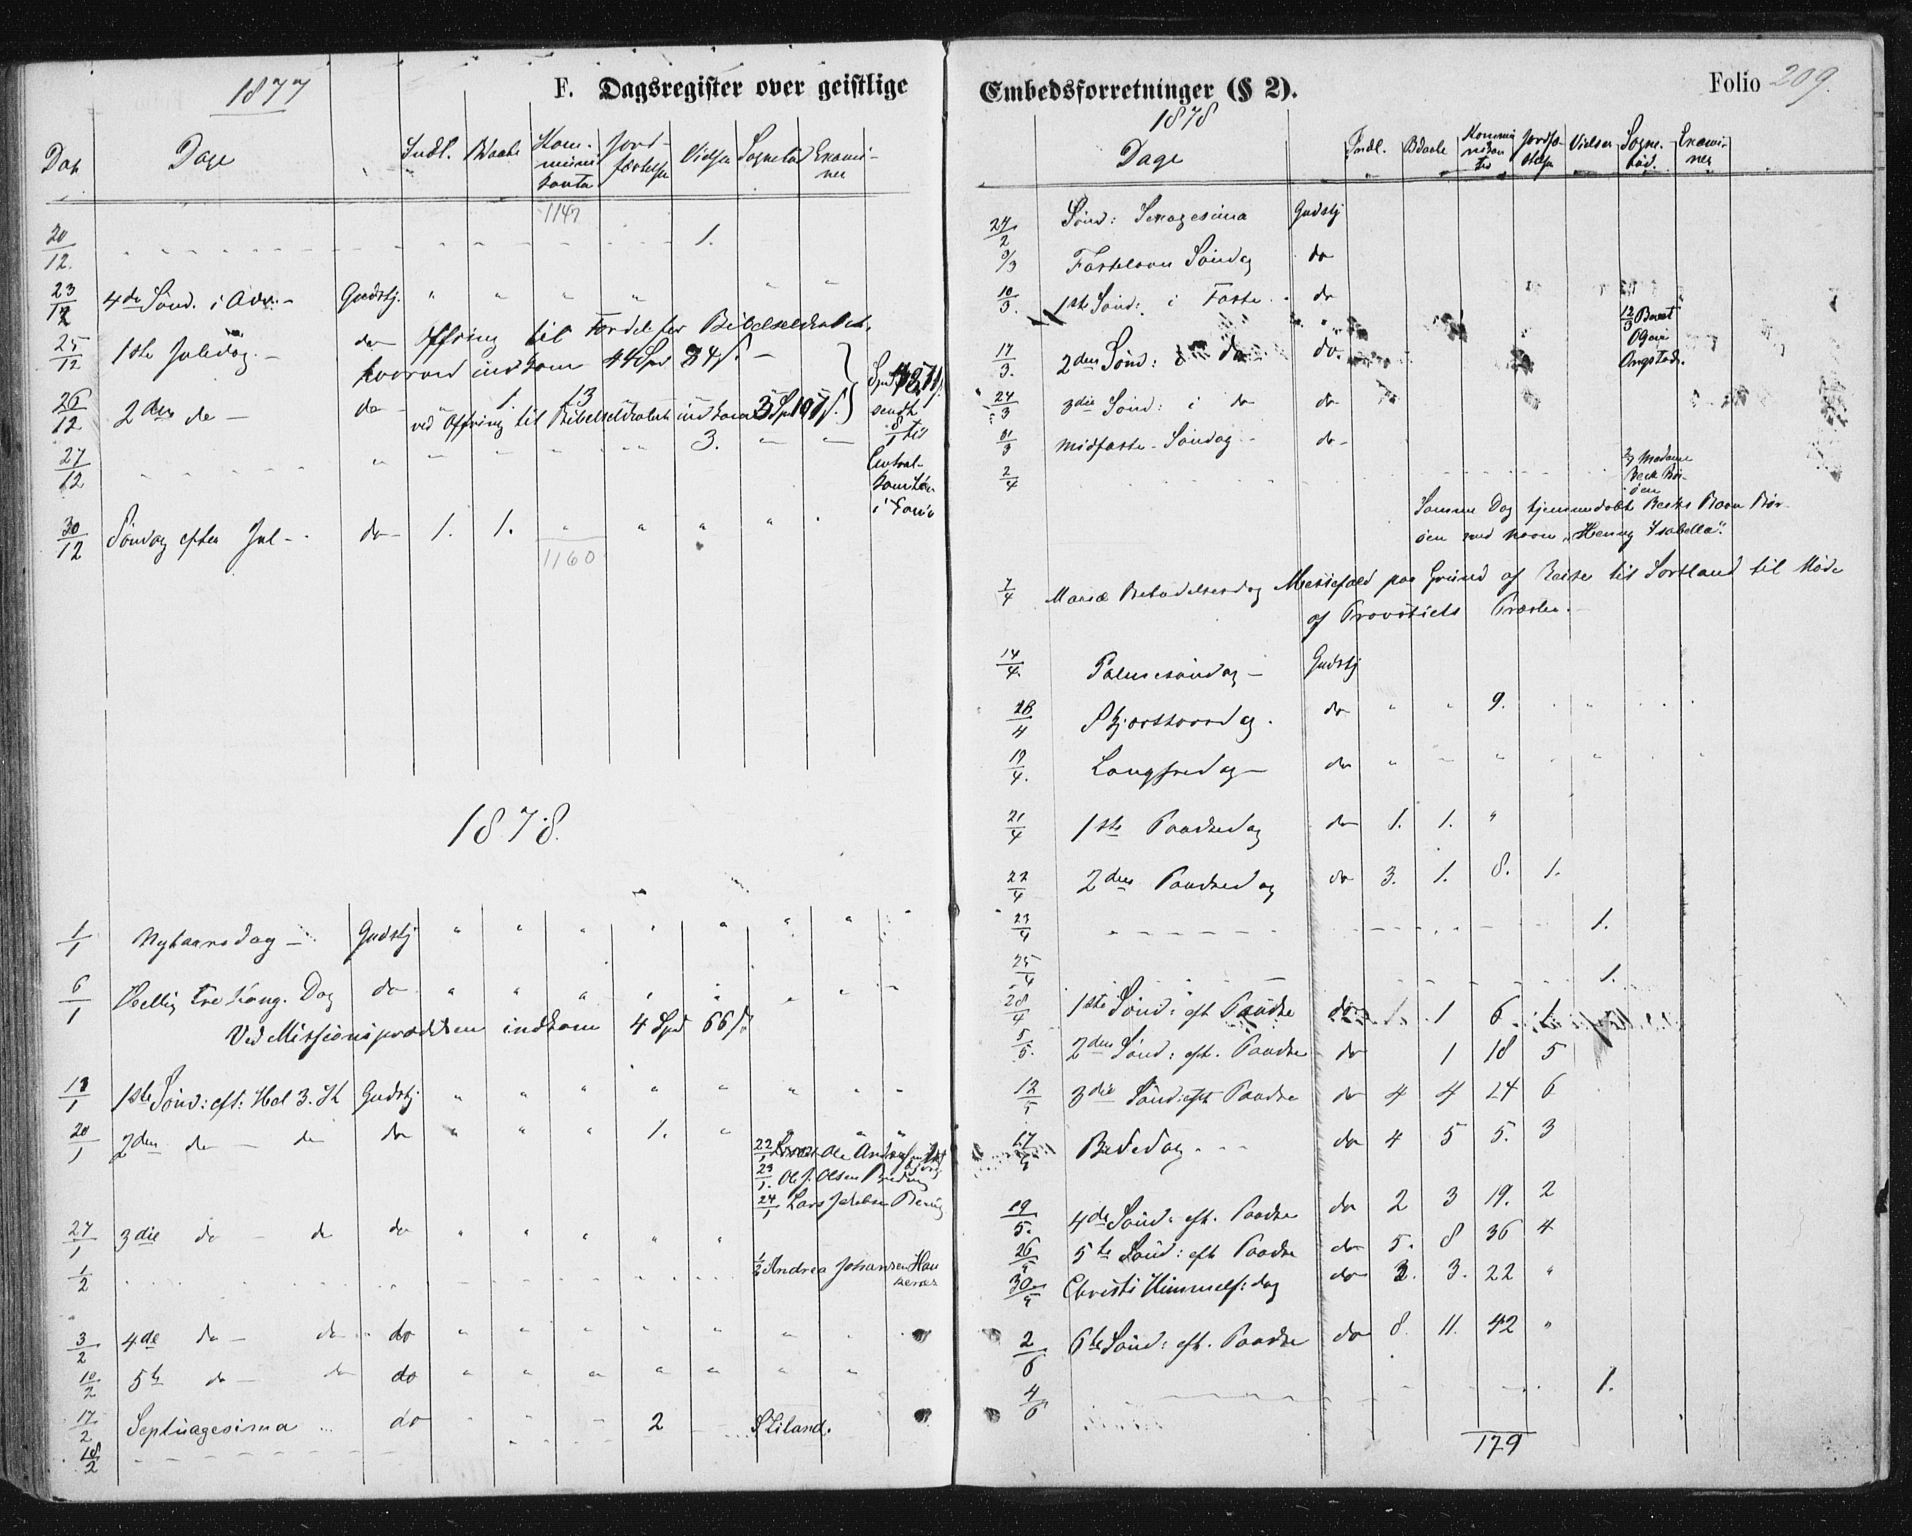 1877
F. Dagsregister over geistlige
Dat Dage Indl. Bdaabt Kommunikanter Jordfæstelser Vielser Sognebud Examiner
1147
20/12. 1.
23/12 4de Sønd. i Adv. - Gudstj.
25/12 1ste Juledag. - do Offring til Fordel for Bibelselskabet,
hvorved indkom 44 Spd 24 s. -
26/12 2den do - do 1. 13
ved Offring til Bibelselskabet indkom 3 Spd
sendt 8/1 til
Central-
komiteen
27/12 3.
30/12 Søndag efter Jul - do 1. 1.
1160
1878.
1/1 Nytaarsdag - Gudstj
6/1 Hellig tre Kong. Dag do
Ved Missionsprædiken indkom 4 Spd 66 s.
13/1 1ste Sønd: eft: Hel 3. K Gudstj.
20/1 2den do - do do 1.
22/1 Ole
23/1. Ole J. Olsen
24/1 Lars Jakobsen
27/1 3die do - do do
1/2 1/2 Andrea Johansen
3/2 4de do - do do
10/2 5te do - do do
17/2 Septuagesima do 2
18/2
Embedsforretninger (§ 2).
Folio 209.
1878
Dage Indl. Bdaabte Kommunikanter Jordfæstelser Vielser Sognebud. Examiner
24/2 Sønd: Sexagesima Gudstj
3/3 Fastelavns Søndag do
10/3. 1ste Sønd: i Faste do
12/3
17/3. 2den Sønd: i do do.
24/3 3die Sønd: i do do
31/3 Midfaste-Søndag - do -
2/4 Madame
Samme Dag hjemmedøbt Becks Barn
øen med Navn "Henny Isabella".
7/4 Mariæ Bebudelsesdag Messefald paa Grund af Reise til Sortland til Møde
af Provstiets Præster. -
14/4. Palmesøndag - Gudstj
18/4 Skjærthorsdag. do 9.
19/4. Langfredag - do
21/4 1ste Paaskedag do 1. 1.
22/4 2den Paaskedag do 3. 1. 8. 1.
23/4 1.
25/4 1.
28/4 1ste Sønd: eft Paaske do 1 1 6 1
5/5. 2den Sønd: eft. Paaske do 1 18 5
12/5 3die Sønd: eft Paaske do 4 4 24 6
17/5 Bededag. do 4 5 5. 3
19/5. 4de Sønd: eft. Paaske do 2 3 19. 2
26/5 5te Sønd: eft Paaske do 5. 8 36 4
30/5 Christi Himmelf: dag do 3. 3. 22
2/6 6te Sønd: eft. Paaske do 8. 11. 42
4/6 1.
179